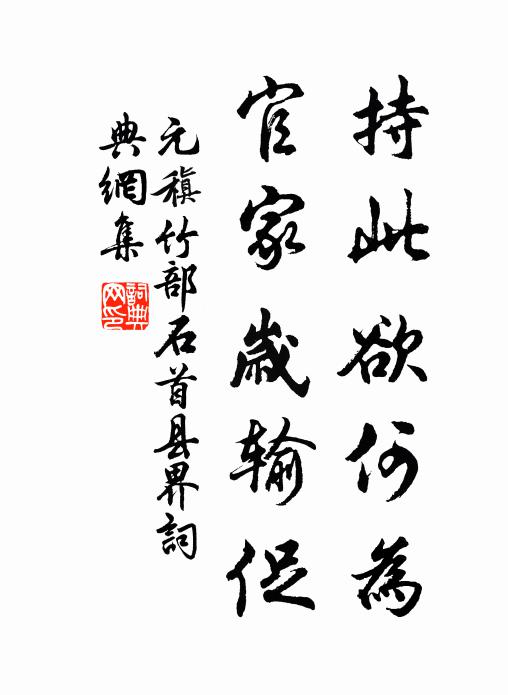 持此欲何為
官家歲輸促
元稹竹部石首县界詞
典網集
詞典网印